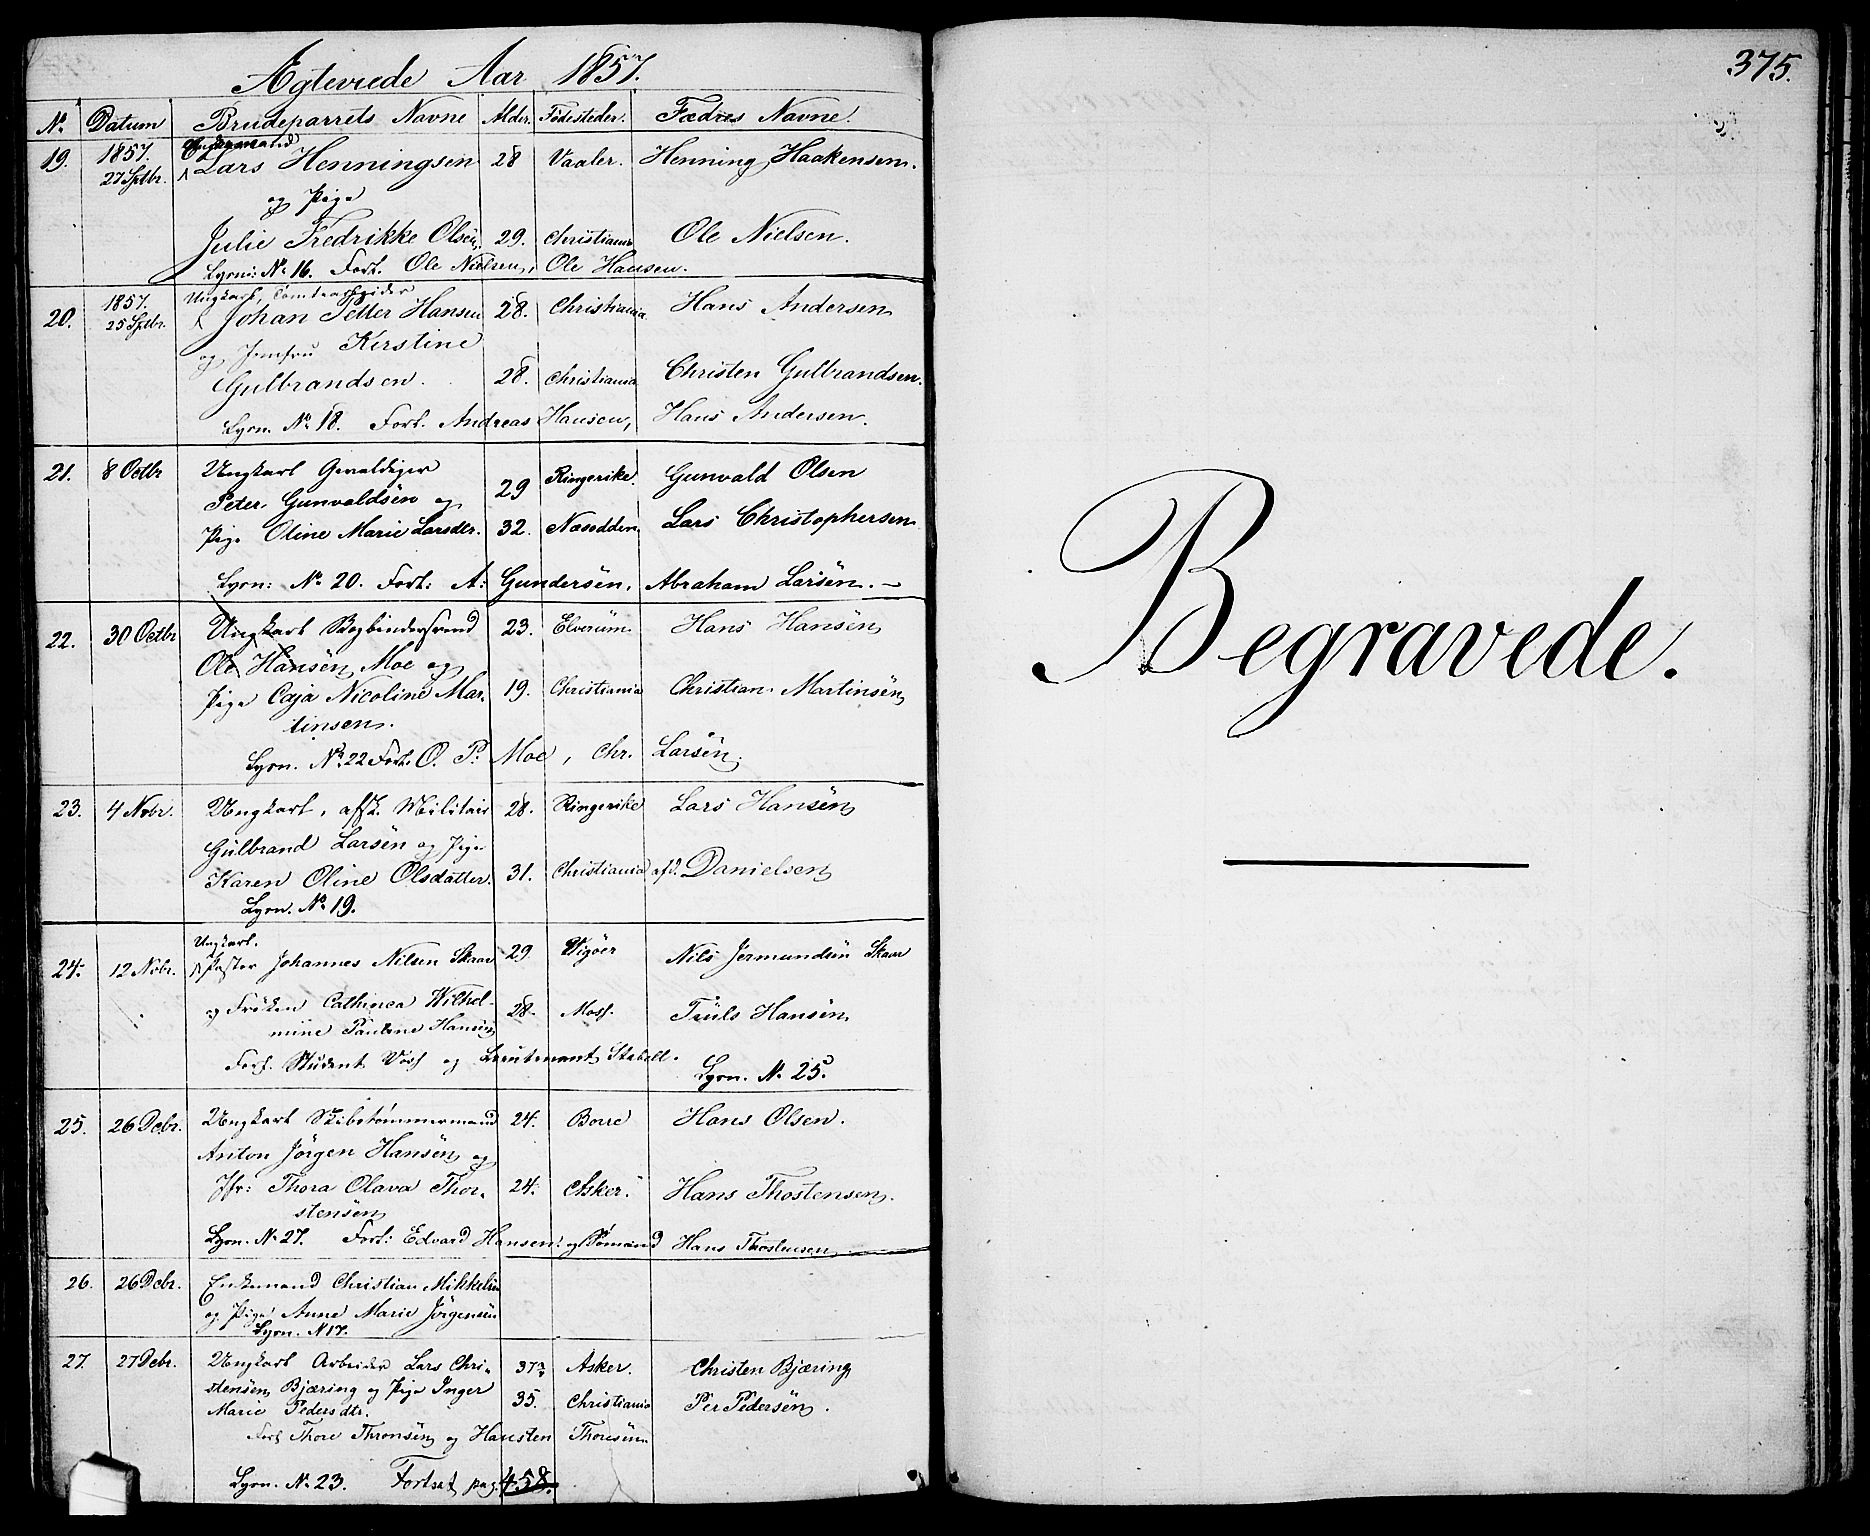 Ægteviede Aar 1857.
No. Datum Brudeparrets Navne Alder. Fødesteder. Fædres Navne.
19. 1857. 27 Sptbr. Lars Henningsen 28 Vaaler. Henning Haakensen.
og Pige
Julie Fredrikke Olsen, 29. Christiania Ole Nielsen.
Lysn: No 16. Forl. Ole Nielsen, Ole Hansen.
20. 1857. 25 Sptbr. Ungkarl, Tomtearbeider
Johan Petter Hansen 28. Christiania Hans Andersen
og Jomfru Kirstine
Gulbrandsen. 28. Christiania Christen Gulbrandsen.
Lysn. No 18. Forl. Andreas Hansen, Hans Andersen.
21. 8 Octbr Ungkarl Gevaldiger
Peter Gunvaldsen og 29 Ringerike. Gunvald Olsen
Pige Oline Marie Larsdtr. 32. Næsodden Lars Christophersen
Lysn: No 20. Forl: A: Gundersen, Abraham Larsen. –
22. 30 Octbr Ungkarl Bogbindersvend 23. Elverum Hans Hansen
Ole Hansen Moe og
Pige Caja Nicoline Mar- 19. Christiania Christian Martinsen
tinsen.
Lysn. No 22 Forl. O. P. Moe, Chr. Larsen.
23. 4 Nvbr. Ungkarl, afsk. Militair 28. Ringerike Lars Hansen
Gulbrand Larsen og Pige
Karen Oline Olsdatter. 31. Christiania afd. Danielsen
Lysn. No 19.
24. 12 Nvbr. Ungkarl.
Pastor Johannes Nilsen Skaar 29 Vigöer Nils Jermundsen Skaar
og Fröken Cathinca Wilhel- 28. Moss. Truls Hansen
mine Pauline Hansen
Forl. Student Voss og Lieutenant Stabell.
Lysn. No 25.
25. 26 Dcbr. Ungkarl Skibstømmermand 24. Borre Hans Olsen.
Anton Jörgen Hansen og
Jfr: Thora Olava Thor- 24. Asker. Hans Thostensen.
stensen
Lysn. No 27. Forl: Edvard Hansen og Sømand Hans Thostensen
26. 26 Dcbr. Enkemand Christian Mikkelsen
og Pige Anne Marie Jörgensen
Lysn. N 17.
27. 27 Dcbr. Ungkarl Arbeider Lars Chri- 37 Asker. Christen Bjæring
stensen Bjæring og Pige Inger 35. Christiania Per Pedersen.
Marie Pedersdtr.
Forl Thore Thronsen og Hansten Thoresen
Lysn. No 23. Fortsat pag. 458.
375.
Begravede.